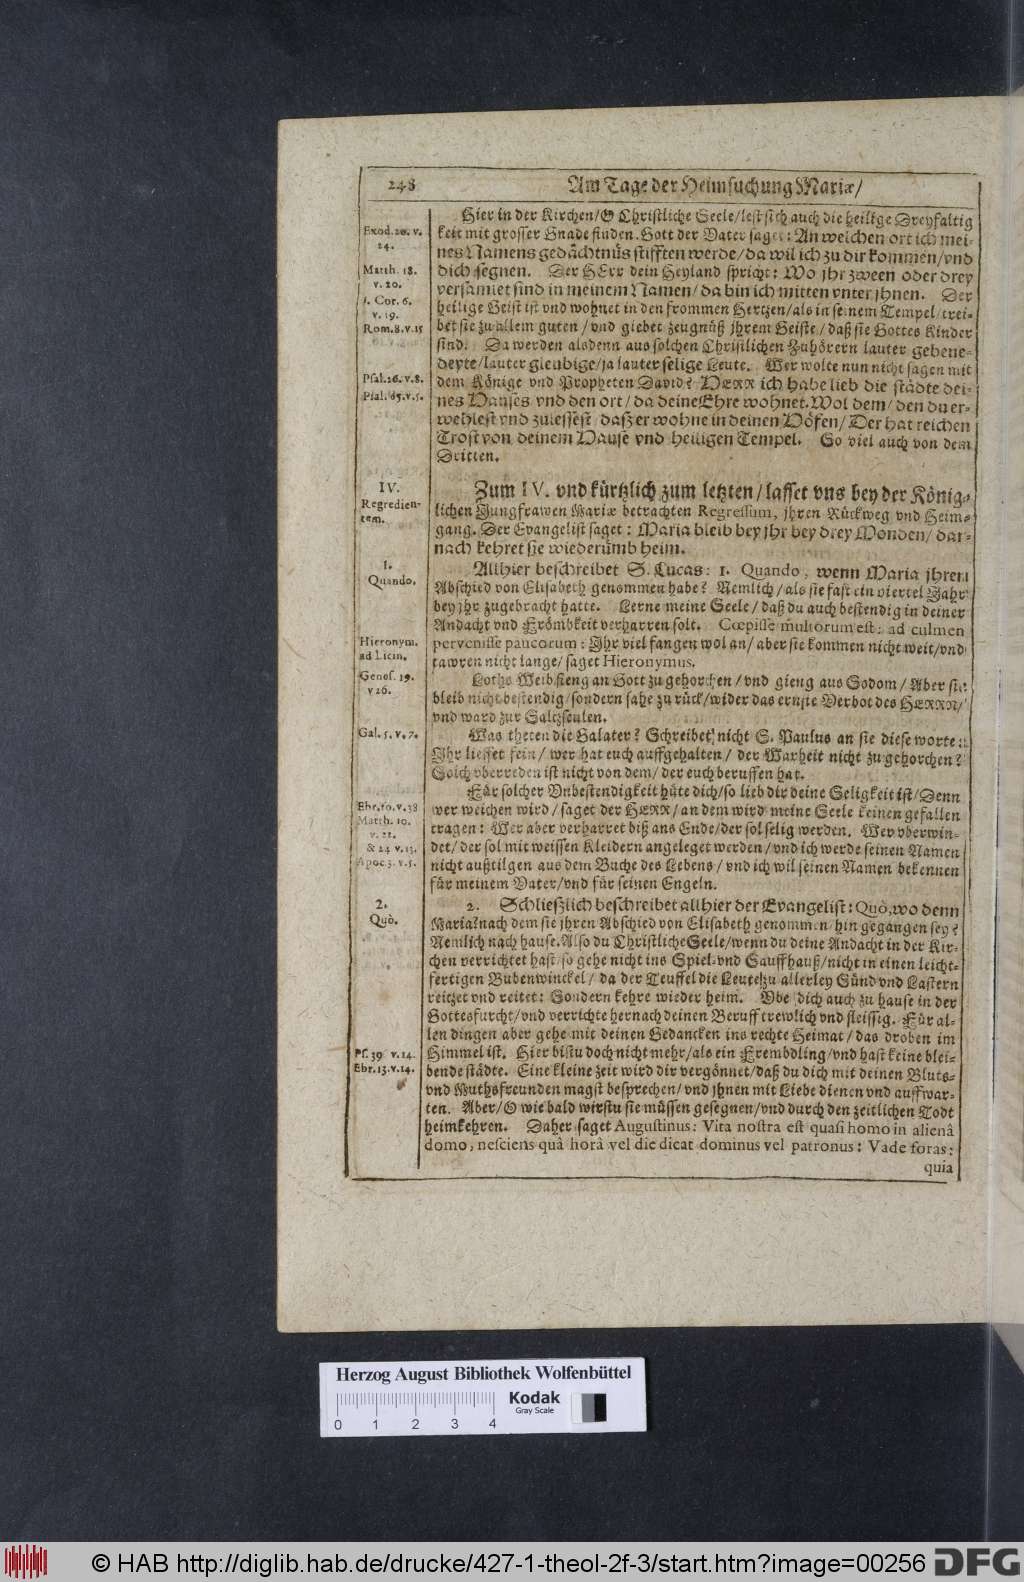 248 Am Tage der Heimsuchung Mariæ/
Hier in der Kirchen/ O Christliche Seele/ lest sich auch die heilige Dreyfaltig
Exod. 20. v. 24.
keit mit grosser Gnade finden. Gott der Vater saget: An welchen ort ich mei-
nes Namens gedächtnüs stifften werde/ da wil ich zu dir kommen/ vnd
Matth. 18. v. 20.
dich segnen. Der HErr dein Heyland spricht: Wo jhr zween oder drey
versamlet sind in meinem Namen/ da bin ich mitten vnter jhnen. Der
1. Cor. 6. v. 19.
heilige Geist ist vnd wohnet in den frommen Hertzen/ als in seinem Tempel/ trei-
Rom. 8. v. 15
bet sie zu allem guten/ vnd giebet zeugnüß jhrem Geiste/ daß sie Gottes Kinder
sind. Da werden alsdenn aus solchen Christlichen Zuhörern lauter gebene-
deyte/ lauter gleubige/ ja lauter selige Leute. Wer wolte nun nicht sagen mit
Psal. 26. v. 8.
dem Könige vnd Propheten David? HERR ich habe lieb die städte dei-
Psal. 65. v. 5.
nes Hauses vnd den ort/ da deine Ehre wohnet. Wol dem/ den du er-
wehlest vnd zulessest/ daß er wohne in deinen Höfen/ Der hat reichen
Trost von deinem Hause vnd heiligen Tempel. So viel auch von dem
Dritten.
IV. Regredien-
tem.
Zum IV. vnd kürtzlich zum letzten/ lasset vns bey der König-
lichen Jungfrawen Mariæ betrachten Regressum, jhren Rückweg vnd Heim-
gang. Der Evangelist saget: Maria bleib bey jhr bey drey Monden/ dar-
nach kehret sie wiederümb heim.
1. Quando.
Allhier beschreibet S. Lucas: 1. Quando, wenn Maria jhren
Abschied von Elisabeth genommen habe? Nemlich/ als sie fast ein viertel Jahr
bey jhr zugebracht hatte. Lerne meine Seele/ daß du auch bestendig in deiner
Andacht vnd Frömbkeit verharren solt. Cœpisse multorum est: ad culmen
Hieronym. ad Licin.
pervenisse paucorum: Jhr viel fangen wol an/ aber sie kommen nicht weit/ vnd
tawren nicht lange/ saget Hieronymus.
Genes. 19. v 26.
Loths Weib fieng an Gott zu gehorchen/ vnd gieng aus Sodom/ Aber sie
bleib nicht bestendig/ sondern sahe zu rück/ wider das ernste Verbot des HERRN/
vnd ward zur Saltzseulen.
Gal. 5. v. 7.
Was theten die Galater? Schreibet nicht S. Paulus an sie diese worte:
Jhr lieffet fein/ wer hat euch auffgehalten/ der Warheit nicht zu gehorchen?
Solch vberreden ist nicht von dem/ der euch beruffen hat.
Für solcher Vnbestendigkeit hüte dich/ so lieb dir deine Seligkeit ist/ Denn
Ebr. 10. v. 38
wer weichen wird/ saget der HERR/ an dem wird meine Seele keinen gefallen
Matth. 10. v. 22. & 24 v. 13.
tragen: Wer aber verharret biß ans Ende/ der sol selig werden. Wer vberwin-
det/ der sol mit weissen Kleidern angeleget werden/ vnd ich werde seinen Namen
Apoc. 3. v. 5.
nicht außtilgen aus dem Buche des Lebens/ vnd ich wil seinen Namen bekennen
für meinem Vater/ vnd für seinen Engeln.
2. Quò.
2. Schließlich beschreibet allhier der Evangelist: Quò, wo denn
Maria/ nach dem sie jhren Abschied von Elisabeth genommen/ hin gegangen sey?
Nemlich nach hause. Also du Christliche Seele/ wenn du deine Andacht in der Kir-
chen verrichtet hast/ so gehe nicht ins Spiel- vnd Sauffhauß/ nicht in einen leicht-
fertigen Bubenwinckel/ da der Teuffel die Leute zu allerley Sünd vnd Lastern
reitzet vnd reitet: Sondern kehre wieder heim. Vbe dich auch zu hause in der
Gottesfurcht/ vnd verrichte hernach deinen Beruff trewlich vnd fleissig. Für al-
len dingen aber gehe mit deinen Gedancken ins rechte Heimat/ das droben im
Ps. 39. v. 14.
Himmel ist. Hier bistu doch nicht mehr/ als ein Frembdling/ vnd hast keine blei-
Ebr. 13. v. 14.
bende städte. Eine kleine zeit wird dir vergönnet/ daß du dich mit deinen Bluts-
vnd Muthsfreunden magst besprechen/ vnd jhnen mit Liebe dienen vnd auffwar-
ten. Aber/ O wie bald wirstu sie müssen gesegnen/ vnd durch den zeitlichen Todt
heimkehren. Daher saget Augustinus: Vita nostra est quasi homo in alienâ
domo, nesciens quâ horâ vel die dicat dominus vel patronus: Vade foras:
quia
Herzog August Bibliothek Wolfenbüttel
0 1 2 3 4
Kodak
Gray Scale
© HAB http://diglib.hab.de/drucke/427-1-theol-2f-3/start.htm?image=00256 DFG